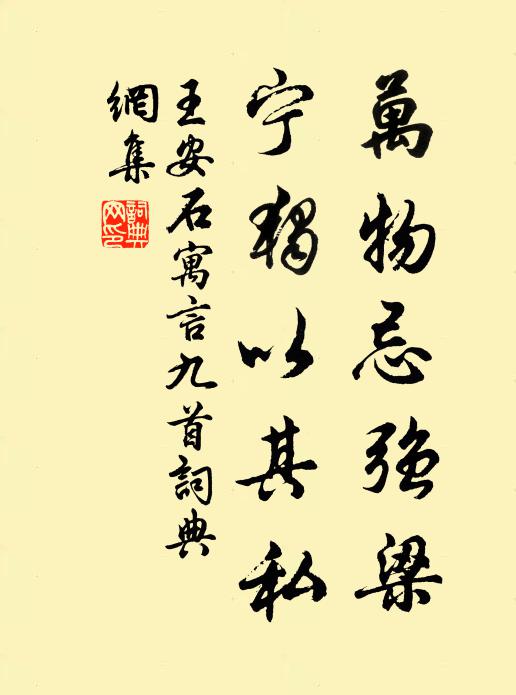 萬物忌强梁
宁獨以其私
王安石寓言九首詞典
網集
詞典網印